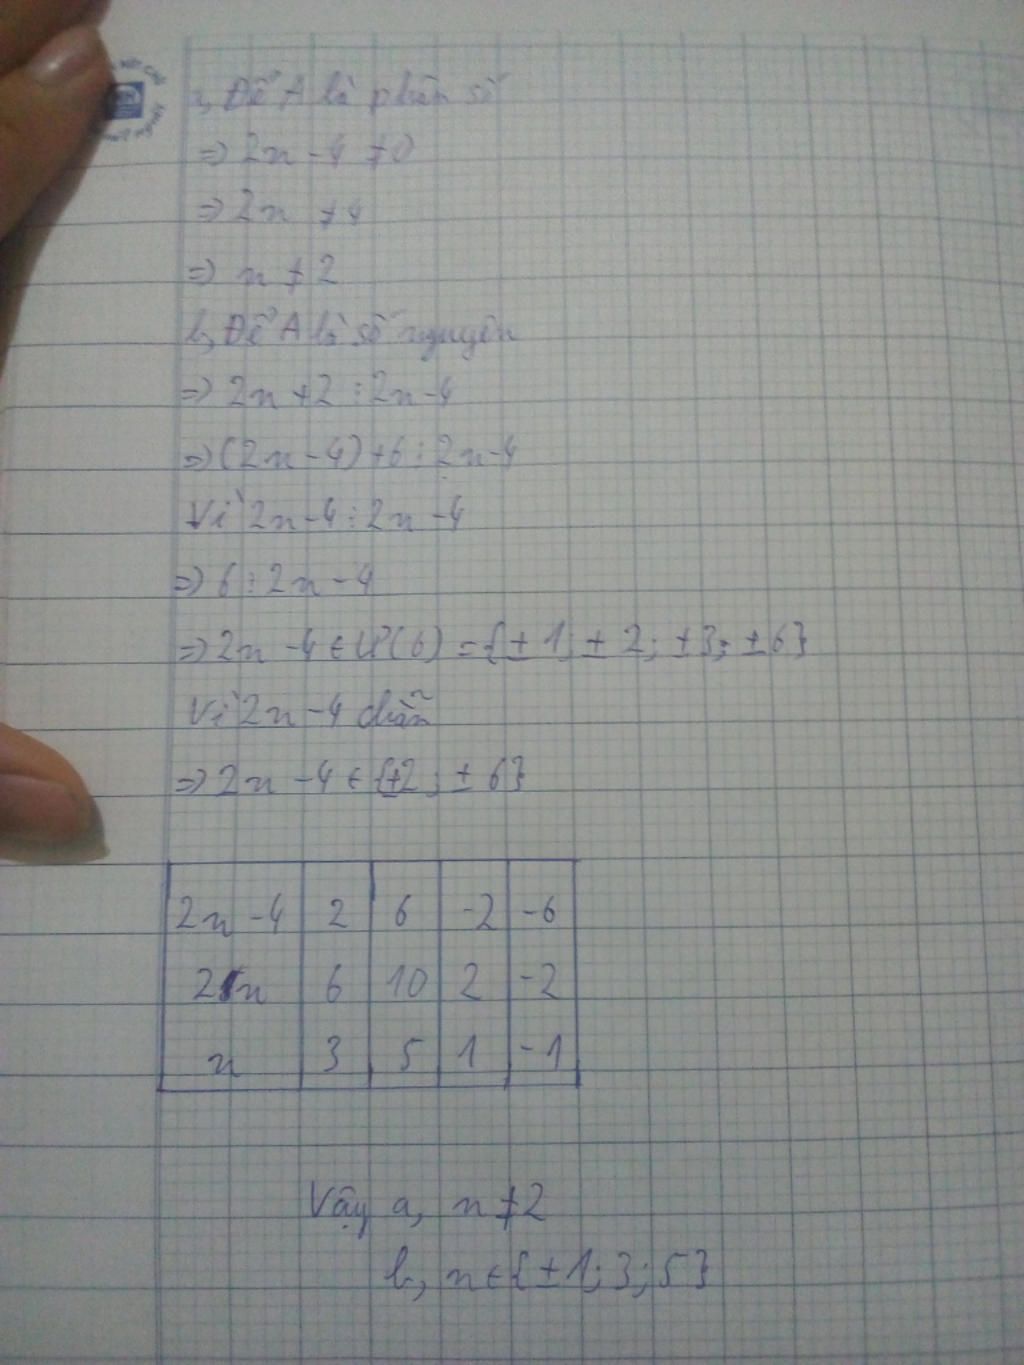 a, Để A là phân số
=> 2n - 4 ≠ 0
=> 2n ≠ 4
=> n ≠ 2
b, Để A là số nguyên
=> 2n + 2 ⋮ 2n - 4
=> (2n - 4) + 6 ⋮ 2n - 4
Vì 2n - 4 ⋮ 2n - 4
=> 6 ⋮ 2n - 4
=> 2n - 4 ∈ Ư(6) = {± 1; ± 2; ±3; ±6}
Vì 2n - 4 chẵn
=> 2n - 4 ∈ {±2; ± 6}
2n - 4 2 6 -2 -6
2n 6 10 2 -2
n 3 5 1 -1
Vậy a, n ≠ 2
b, n ∈ {± 1; 3; 5}